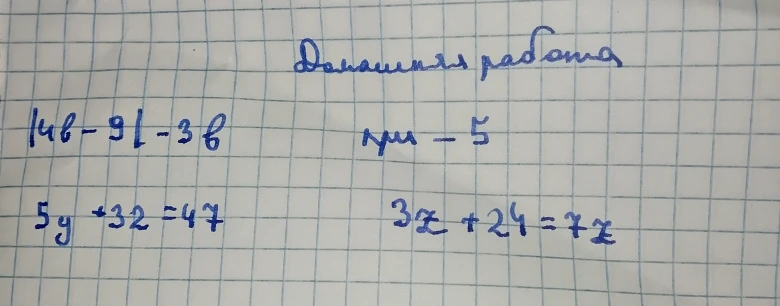 Домашняя работа
|4в - 9| - 3в при - 5
5y + 32 = 47 3z + 24 = 7z